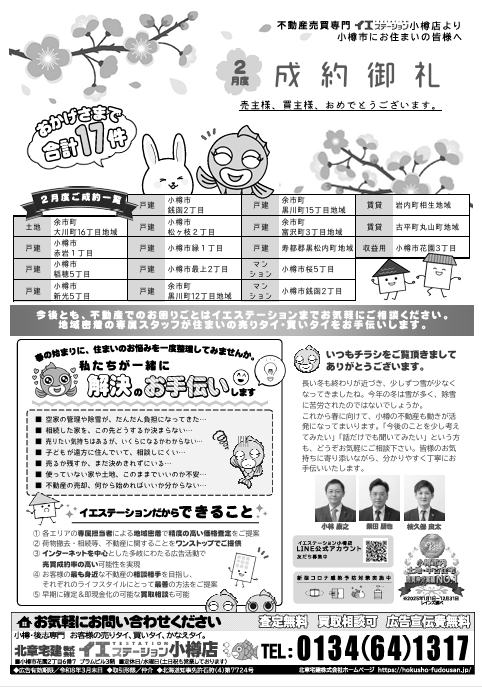 不動産売買専門 イエステーション小樽店より
小樽市にお住まいの皆様へ
2月度 成約御礼
売主様、買主様、おめでとうございます。
おかげさまで
合計17件
2月度ご成約一覧
土地 余市町大川町16丁目地域
戸建 小樽市赤岩1丁目
戸建 小樽市稲穂5丁目
戸建 小樽市新光5丁目
戸建 小樽市銭函2丁目
戸建 小樽市松ヶ枝2丁目
戸建 小樽市緑1丁目
戸建 小樽市最上2丁目
戸建 余市町黒川町12丁目地域
戸建 余市町黒川町15丁目地域
戸建 余市町富沢町3丁目地域
戸建 寿都郡黒松内町地域
マンション 小樽市桜5丁目
マンション 小樽市銭函2丁目
賃貸 岩内町相生地域
賃貸 古平町丸山町地域
収益用 小樽市花園3丁目
今後とも、不動産でのお困りごとはイエステーションまでお気軽にご相談ください。
地域密着の専属スタッフが住まいの売りタイ・買いタイをお手伝いします。
春の始まりに、住まいのお悩みを一度整理してみませんか。
私たちが一緒に
解決のお手伝いします
■ 空家の管理や除雪が、だんだん負担になってきた…
■ 相続した家を、この先どうするか決まらない…
■ 売りたい気持ちはあるが、いくらになるかわからない…
■ 子どもが遠方に住んでいて、相談しにくい…
■ 売るか残すか、まだ決めきれずにいる…
■ 使っていない家や土地、このままでいいのか不安…
■ 不動産の売却、何から始めればいいか分からない…
イエステーションだからできること
① 各エリアの専属担当者による地域密着で精度の高い価格査定をご提案
② 荷物撤去・相続等、不動産に関することをワンストップでご提供
③ インターネットを中心とした多岐にわたる広告活動で
売買成約率の高い可能性を実現
④ お客様の最も身近な不動産の相談相手を目指し、
それぞれのライフスタイルにとって最善の方法をご提案
⑤ 早期に確定&即現金化の可能な買取相談も可能
いつもチラシをご覧頂きまして
ありがとうございます。
長い冬も終わりが近づき、少しずつ雪が少なく
なってきましたね。今年の冬は雪が多く、除雪
に苦労されたのではないでしょうか。
これから春に向けて、小樽の不動産も動きが活
発になってまいります。「今後のことを少し考え
てみたい」「話だけでも聞いてみたい」という方
も、どうぞお気軽にご相談下さい。皆様のお気
持ちに寄り添いながら、分かりやすく丁寧にお
手伝いいたします。
イエステーション小樽店
LINE公式アカウント
友だち募集中
新型コロナ感染予防対策実施中
※2025年1月1日~12月31日
レインズ調べ
お気軽にお問い合わせください
査定無料 買取相談可 広告宣伝費無料
小樽・後志専門 お客様の売りタイ、買いタイ、かなえタイ。
北章宅建株式会社 イエステーション小樽店
TEL:0134(64)1317
■小樽市花園2丁目6番7 プラムビル3階 ■定休日/水曜日(土日祝も営業しております)
◆広告有効期限/令和8年3月末日 ◆取引形態/仲介 ◆北海道知事免許石狩(4)第7724号
北章宅建株式会社ホームページ https://hokusho-fudousan.jp/